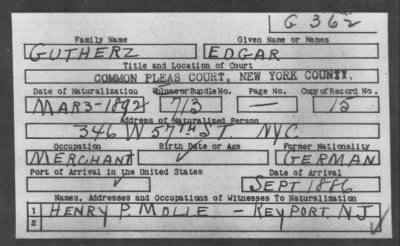 G 362
Family Name Given Name or Names
GUTHERZ EDGAR
Title and Location of Court
COMMON PLEAS COURT, NEW YORK COUNTY.
Date of Naturalization Volume or Bundle No. Page No. Copy of Record No.
MAR 3-1892 713 — 15
Address of Naturalized Person
346 W 57TH ST. NYC
Occupation Birth Date or Age Former Nationality
MERCHANT ✓ GERMAN
Port of Arrival in the United States Date of Arrival
✓ SEPT 1886
Names, Addresses and Occupations of Witnesses To Naturalization
1 HENRY P. MOLLE — KEYPORT. NJ
2